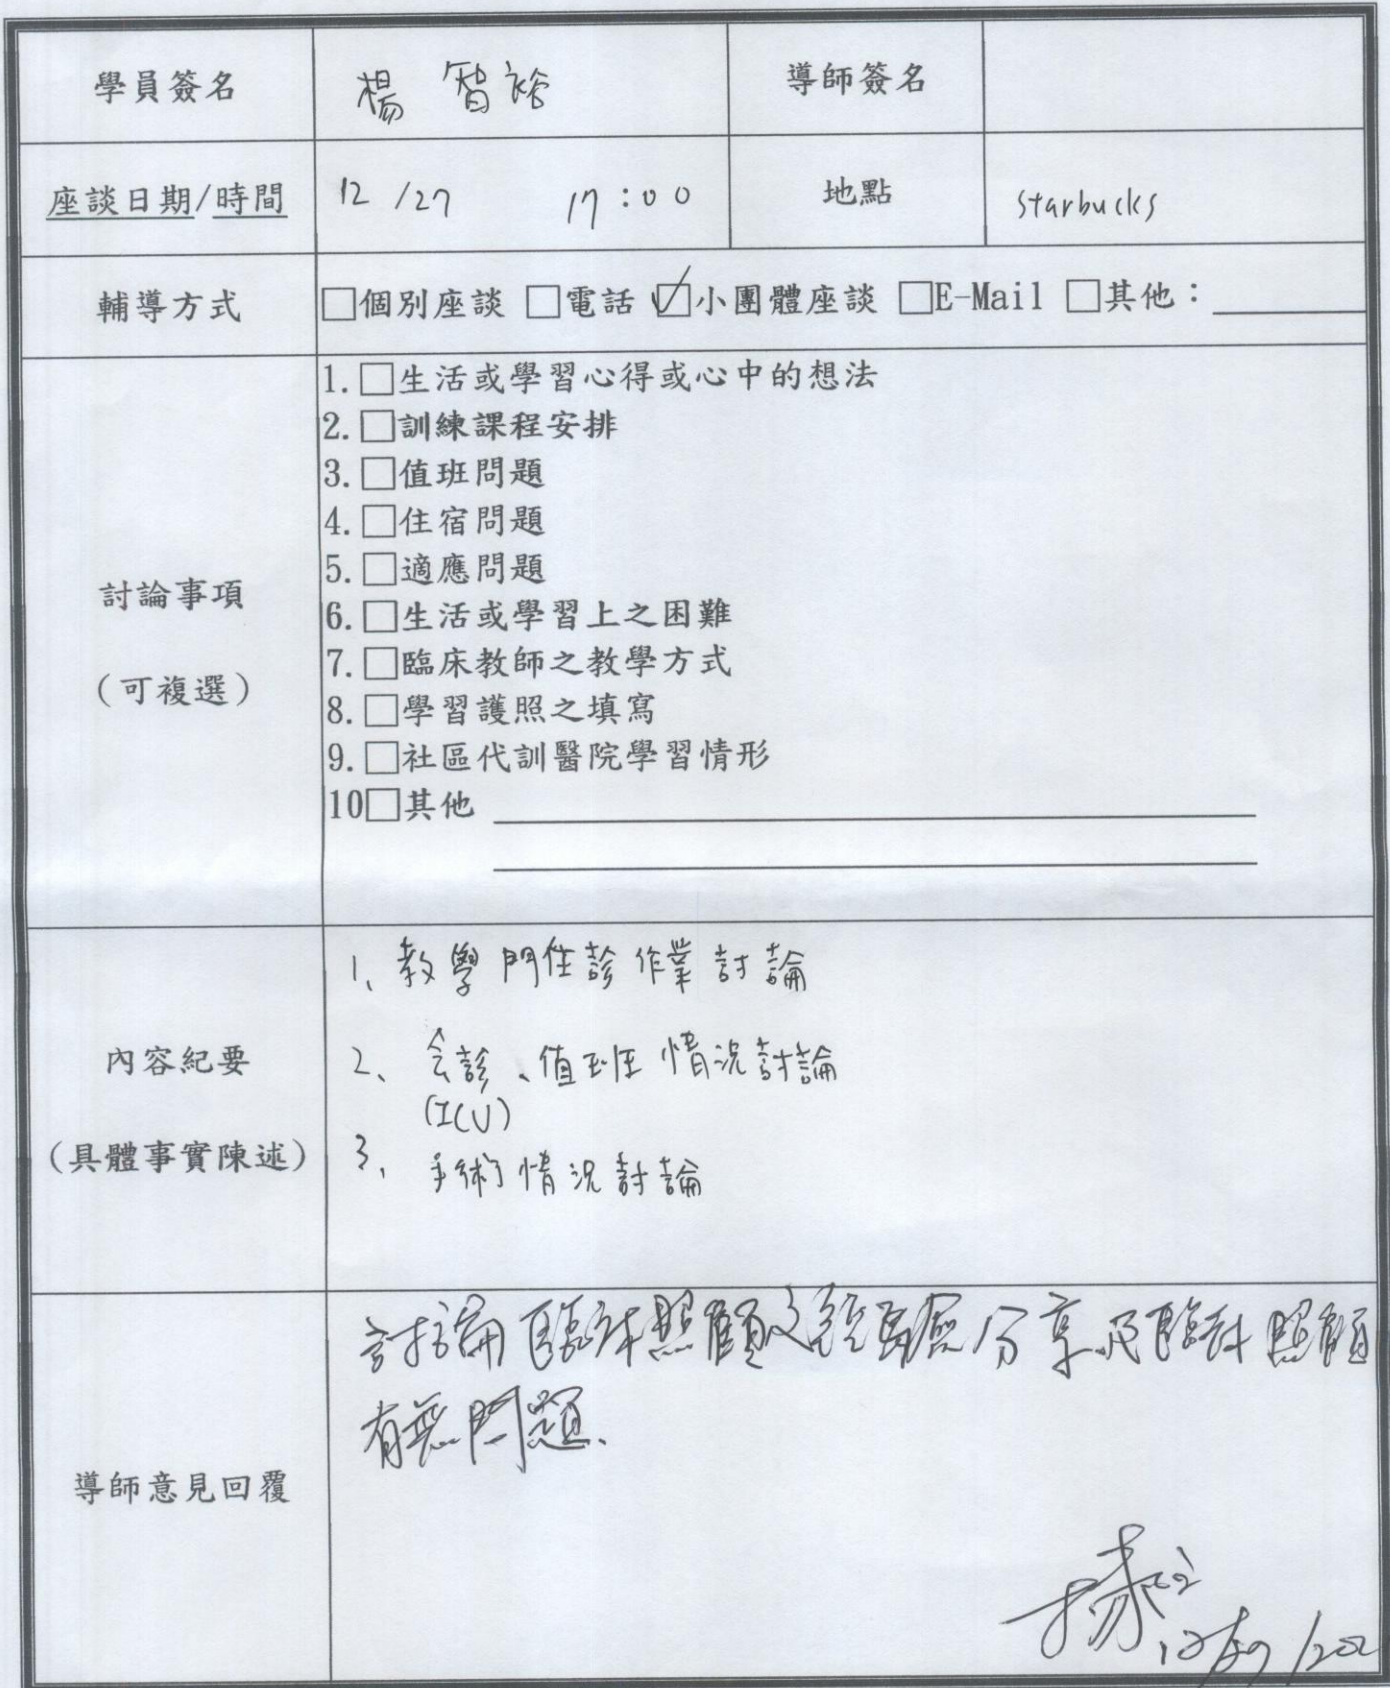 學員簽名 楊智裕 導師簽名
座談日期/時間 12/27 17:00 地點 Starbucks
輔導方式 □個別座談 □電話 ☑小團體座談 □E-Mail □其他：
討論事項
（可複選）
1.□生活或學習心得或心中的想法
2.□訓練課程安排
3.□值班問題
4.□住宿問題
5.□適應問題
6.□生活或學習上之困難
7.□臨床教師之教學方式
8.□學習護照之填寫
9.□社區代訓醫院學習情形
10□其他
內容紀要
（具體事實陳述）
1、教學門住診作業討論
2、会診、值班情況討論
(ICU)
3、手術情況討論
導師意見回覆
討論臨床照顧之經驗分享及臨床照顧
有無問題.